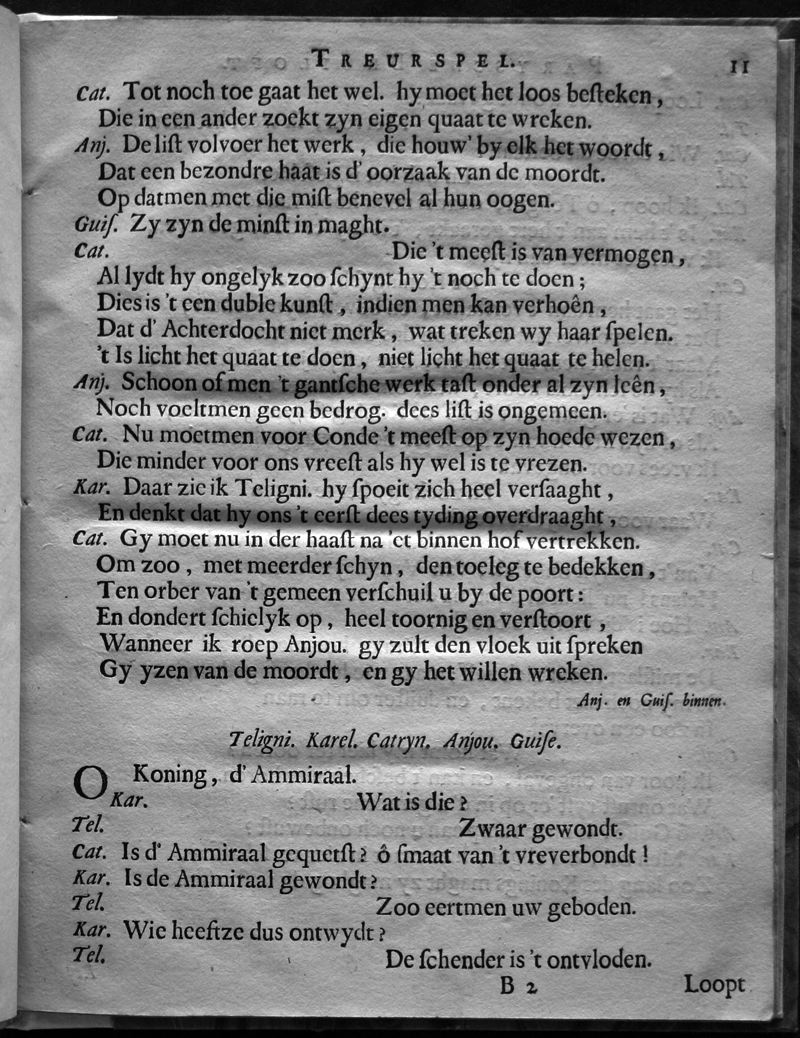 TREURSPEL. 11
Cat. Tot noch toe gaat het wel. hy moet het loos beſteken,
Die in een ander zoekt zyn eigen quaat te wreken.
Anj. De liſt volvoer het werk, die houw' by elk het woordt,
Dat een bezondre haat is d' oorzaak van de moordt.
Op datmen met die miſt benevel al hun oogen.
Guiſ. Zy zyn de minſt in maght.
Cat. Die 't meeſt is van vermogen,
Al lydt hy ongelyk zoo ſchynt hy 't noch te doen;
Dies is 't een duble kunſt, indien men kan verhoên,
Dat d' Achterdocht niet merk, wat treken wy haar ſpelen.
't Is licht het quaat te doen, niet licht het quaat te helen.
Anj. Schoon of men 't gantſche werk taſt onder al zyn leên,
Noch voeltmen geen bedrog. dees liſt is ongemeen.
Cat. Nu moetmen voor Conde 't meeſt op zyn hoede wezen,
Die minder voor ons vreeſt als hy wel is te vrezen.
Kar. Daar zie ik Teligni. hy ſpoeit zich heel verſaaght,
En denkt dat hy ons 't eerſt dees tyding overdraaght,
Cat. Gy moet nu in der haaſt na 'et binnen hof vertrekken.
Om zoo, met meerder ſchyn, den toeleg te bedekken,
Ten orber van 't gemeen verſchuil u by de poort:
En dondert ſchielyk op, heel toornig en verſtoort,
Wanneer ik roep Anjou. gy zult den vloek uit ſpreken
Gy yzen van de moordt, en gy het willen wreken.
Anj. en Guiſ. binnen.
Teligni. Karel. Catryn. Anjou. Guiſe.
O Koning, d' Ammiraal.
Kar. Wat is die?
Tel. Zwaar gewondt.
Cat. Is d' Ammiraal gequetſt? ô ſmaat van 't vreverbondt!
Kar. Is de Ammiraal gewondt?
Tel. Zoo eertmen uw geboden.
Kar. Wie heeftze dus ontwydt?
Tel. De ſchender is 't ontvloden.
B 2 Loopt